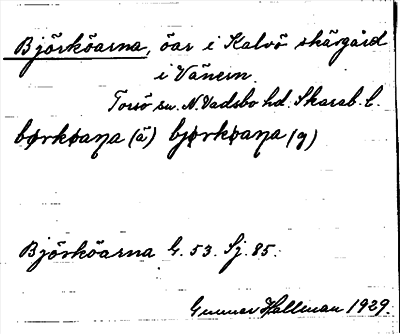 Björköarna, öar i Kalvö skärgård
i Vänern.
Torsö sn. N. Vadsbo hd. Skarab. l.
børkøaɳa (ä) bjørkøaɳa (y)
Björköarna G. 53. Sj. 85.
Gunnar Hallman 1929.